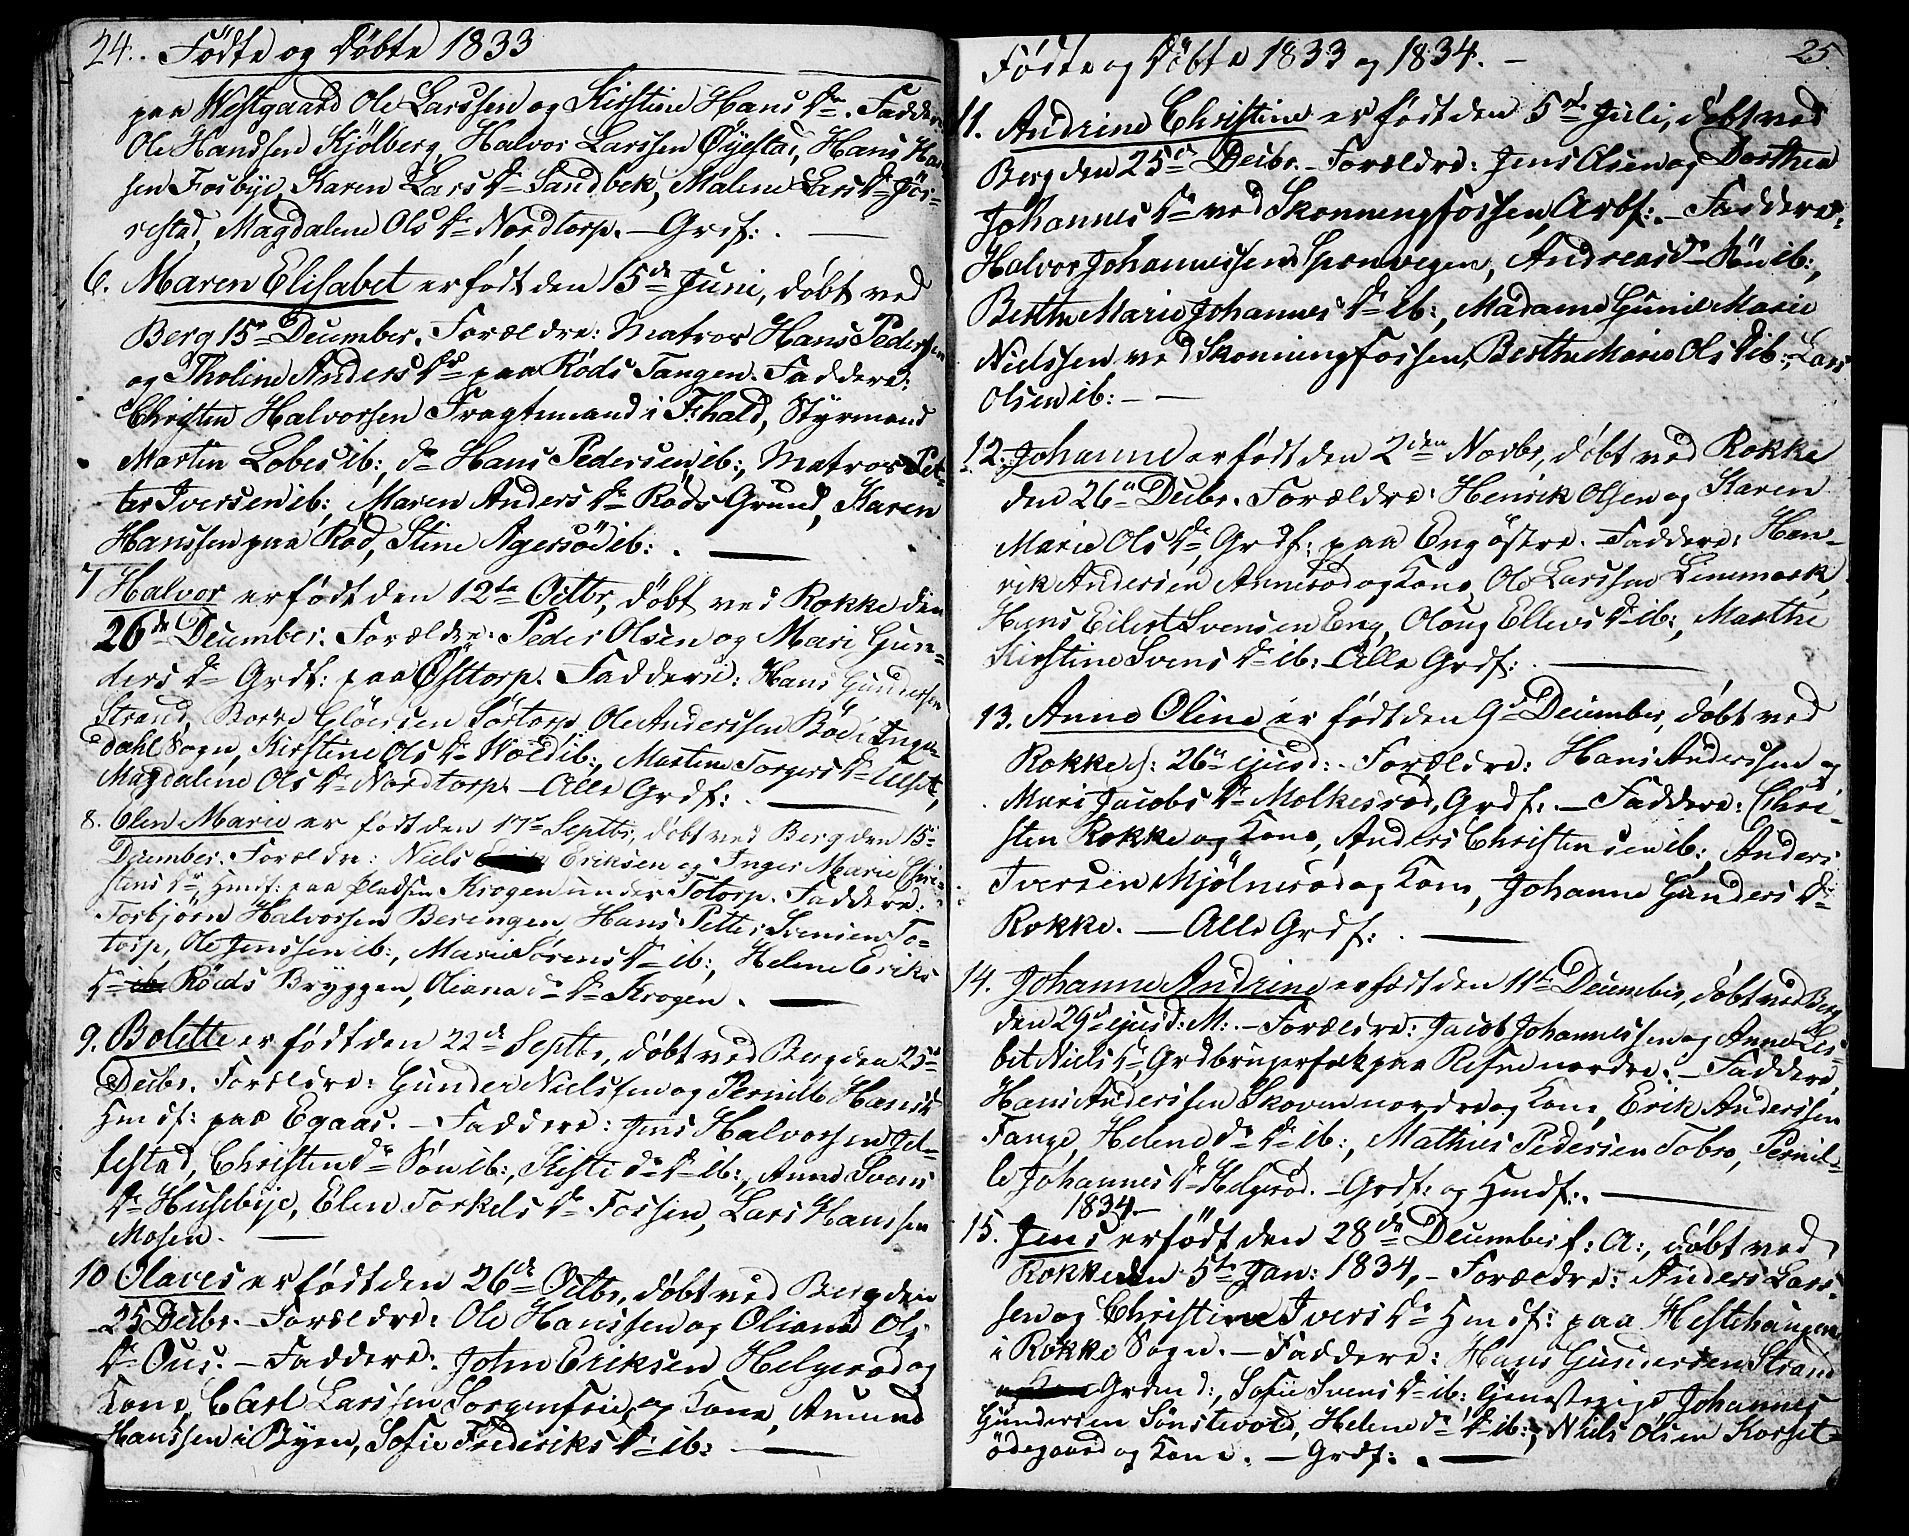 24. Födte og Döbte 1833
paa Westgaard Ole Larssen og Kirstine Hans Dr. Faddere
Ole Hanssen Kjölberg, Halvor Larssen Öÿestad, Hans Han
sen Fosbÿe, Karen Lars Dr Sandbek, Malene Lars Dr Jör-
restad, Magdalene Ols Dr Nordtorp. - Grdf: . —
6. Maren Elisabet er födt den 15de Juni, döbt ved
Berg 15de December. Forældre: Matros Hans Pedersen
og Tholine Anders Dr paa Röds Tangen. Faddere:
Christen Halvorsen Fragtemand i Fr.hald, Styrmand
Martin Lobes ib:, do Hans Pedersen ib:, Matros Pet-
ter Iversen ib:, Maren Anders Dr Röds Grund, Karen
Hanssen paa Röd, Stine Agersöe ib: . —
7 Halvor er födt den 12te Octbr, döbt ved Rokke den
26de December. Forældre: Peder Olsen og Mari Gun-
ders Dr Grdf: paa Östtorp. Faddere: Hans Gundersen
Strand, Borre Glöersen Sörtorp, Ole Anderssen Böe i Inge-
dahl Sogn, Kirstine Ols Dr Wold ib:, Martine Torgers Dr
Magdalene Ols Dr Nordtorp. - Alle Grdf: . —
8. Elen Marie er födt den 17de Septbr, döbt ved Berg den 15de
December. Forældre: Niels Eriksen og Inger Marie Chri-
stens Dr, Hmdf: paa Pladsen Krogen under Totorp. Faddere:
Torbjörn Halvorssen Berengen, Hans Petter Svensen To-
torp, Ole Jenssen ib:, Marie Sörens Dr ib:, Helene Eriks
Dr ib: Röds Bryggen, Oliana do Dr Krogen. —
9. Bolette er födt den 22de Septbr, döbt ved Berg den 25de
Decbr. Forældre: Gunder Nielssen og Pernille Hans Dr
Hmdf: paa Egaas. - Faddere: Jens Halvorssen Jel-
lestad, Christen do Sön ib:, Kisti do Dr ib:, Anne Svens
Dr Husebÿe, Elen Torkels Dr Fossen, Lars Hanssen
Mosen. —
10 Olaves er födt den 26de Octbr, döbt ved Berg den
25 Decbr. - Forældre: Ole Hanssen og Oliana Ols
Dr Ous. - Faddere: John Eriksen Helgerød og
Kone, Carl Larssen Sorgenfrie og Kone, Amund
Hanssen i Byen, Sofie Frederiks Dr ib: —
Födte og Döbte 1833 og 1834. - 25.
11. Andrine Christine er födt den 5te Juli, döbt ved
Berg den 25de Decbr. - Forældre: Jens Olsen og Dorthea
Johannes Dr ved Skonningfossen, Arbf: - Faddere:
Halvor Johannessen Sponvegen, Andreas do Sön ib:,
Berthe Marie Johannes Dr ib:, Madame Gunil Marie
Nielssen ved Skonningfossen, Berthe Marie Ols D ib:, Lars
Olsen ib: - —
12. Johanne er födt den 2den Novbr, döbt ved Rokke
den 26de Decbr. Forældre: Henrik Olsen og Karen
Marie Ols Dr, Grdf: paa Eng östre. - Faddere: Hen-
rik Andersen Anneröd og Kone, Ole Larssen Linemark,
Hans Eilert Svensen Eng, Oloug Ellevs Dr ib:, Marthe
Kirstine Svens Dr ib: - Alle Grdf: . —
13. Anne Oline er födt den 9de December, döbt ved
Rokke d: 26de ejusd: - Forældre: Hans Anderssen og
Mari Jacobs Dr Molkesröd, Grdf: - Faddere: Chri-
sten Rokke og Kone, Anders Christensen ib:, Anders
Iversen Mjölneröd og Kone, Johanne Gunders Dr
Rokke. - Alle Grdf: . —
14. Johanne Andrine er födt den 11te December, döbt ved Berg
den 29de ejusd: M: - Forældre: Jacob Johannessen og Anne Lis-
bet Niels Dr Grdbrugerfolk paa Refne nordre. - Faddere,
Hans Anderssen Skoven nordre og Kone, Erik Anderssen
Tange, Helene do Dr ib:, Mathias Pedersen Tobro, Pernil-
le Johannes Dr Helgeröd. - Grdf: og Hmdf: . —
1834 -
15. Jens er födt den 28de December f: A:, döbt ved
Rokke den 5te Jan: 1834, - Forældre: Anders Lars-
sen og Christine Ivers Dr Hmdf: paa Hestehaugen
i Rokke Sogn. - Faddere: Hans Gundersen Strand
og Kone Grdm d:, Sofie Svens Dr ib: tjenestepige, Johannes
Gundersen Sönstevold, Helene do Dr ib:, Niels Olsen Korset-
ödegaard og Kone. - Grdf: . —